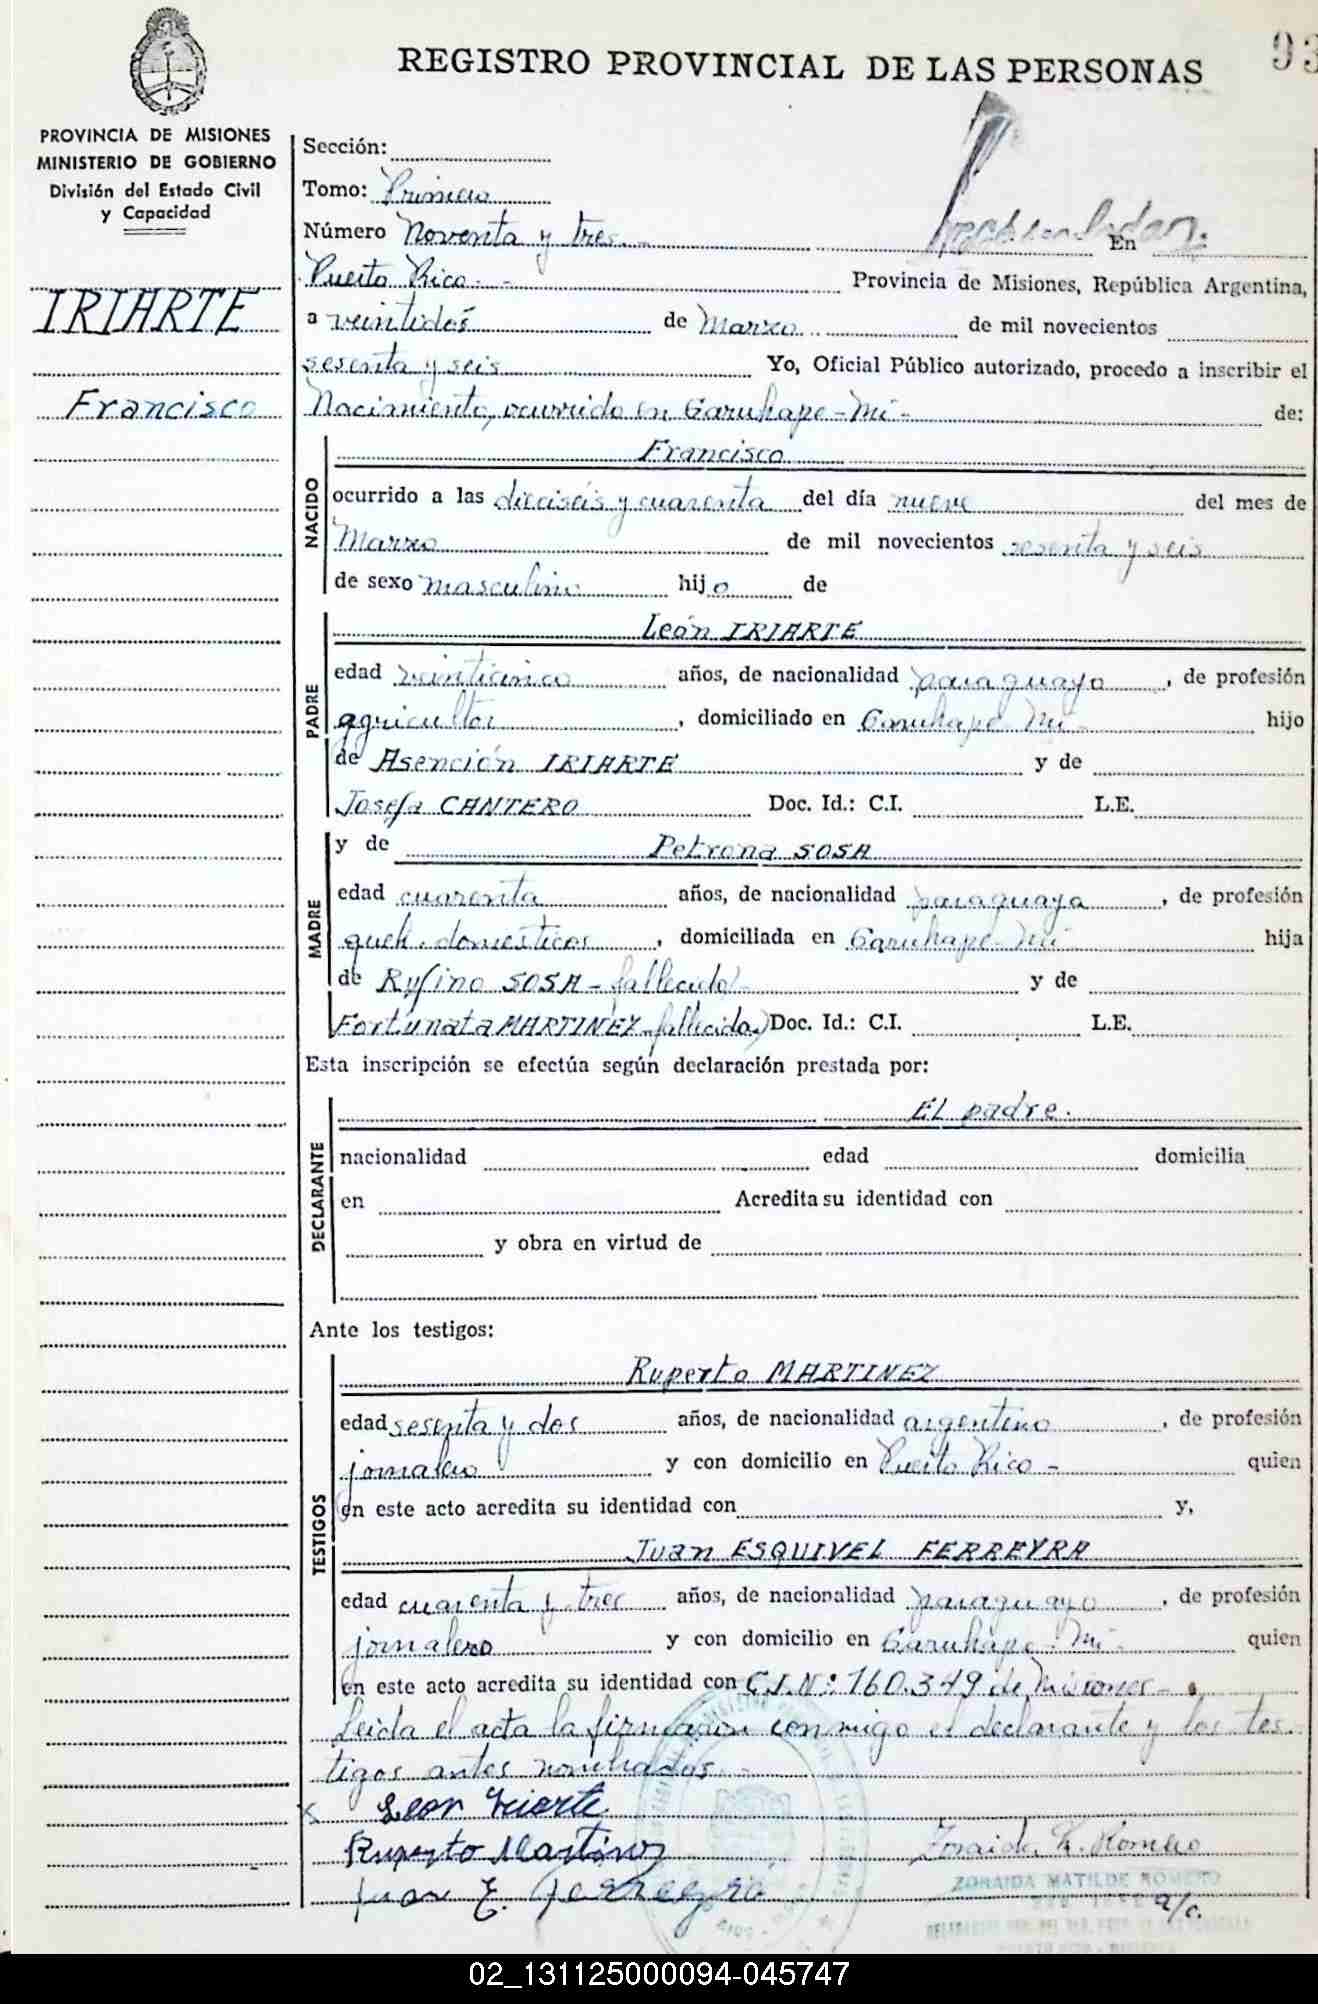 REGISTRO PROVINCIAL DE LAS PERSONAS
93
PROVINCIA DE MISIONES
MINISTERIO DE GOBIERNO
División del Estado Civil
y Capacidad
IRIARTE
Francisco
Sección:
Tomo: Primero
Número Noventa y tres.- En
Puerto Rico.- Provincia de Misiones, República Argentina,
a veintidós de Marzo de mil novecientos
sesenta y seis Yo, Oficial Público autorizado, procedo a inscribir el
Nacimiento, ocurrido en Garuhape-Mi- de:
NACIDO
Francisco
ocurrido a las dieciseis y cuarenta del día nueve del mes de
Marzo de mil novecientos sesenta y seis
de sexo masculino hijo de
PADRE
León IRIARTE
edad veinticinco años, de nacionalidad paraguayo, de profesión
agricultor, domiciliado en Garuhape-Mi- hijo
de Asención IRIARTE y de
Josefa CANTERO Doc. Id.: C.I. L.E.
MADRE
y de Petrona SOSA
edad cuarenta años, de nacionalidad paraguaya, de profesión
queh. domesticos, domiciliada en Garuhape-Mi- hija
de Rufino SOSA - fallecido)- y de
Fortunata MARTINEZ-fallecida) Doc. Id.: C.I. L.E.
Esta inscripción se efectúa según declaración prestada por:
DECLARANTE
El padre.
nacionalidad edad domicilia
en Acredita su identidad con
y obra en virtud de
Ante los testigos:
TESTIGOS
Ruperto MARTINEZ
edad sesenta y dos años, de nacionalidad argentino, de profesión
jornalero y con domicilio en Puerto Rico - quien
en este acto acredita su identidad con y,
Juan ESQUIVEL FERREYRA
edad cuarenta y tres años, de nacionalidad paraguayo, de profesión
jornalero y con domicilio en Garuhape-Mi- quien
en este acto acredita su identidad con C.I.N: 160.349 de Misiones-.
Leida el acta la firman con migo el declarante y los tes-
tigos antes nombrados.-
Leon Iriarte
Ruperto Martinez
Zoraida M. Romero
Juan E. Ferreyra
ZORAIDA MATILDE ROMERO
a/c.
02_131125000094-045747